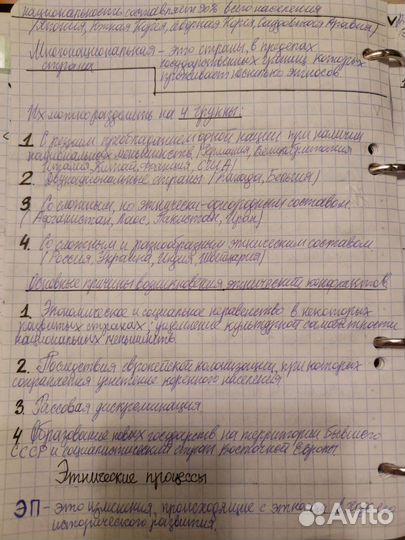 национальности составляет 90% всего населения
(Япония, Южная Корея, Северная Корея, Саудовская Аравия)
Многонациональная – это страны, в пределах
страна государственных границ которых
проживает несколько этносов
Их можно разделить на 4 группы:
1. С резким преобладанием одной нации при наличии
национальных меньшинств (Германия, Великобритания
Италия, Япония, США)
2. Двунациональные страны (Канада, Бельгия)
3 Со сложным, но этнически-однородным составом
(Афганистан, Лаос, Пакистан, Иран)
4. Со сложным и разнообразным этническим составом
(Россия, Украина, Индия, Швейцария)
Основные причины возникновения этнических конфликтов
1. Экономическое и социальное неравенство в некоторых
развитых странах; ущемление культурной самобытности
национальных меньшинств
2. Последствия европейской колонизации, при которых
сохраняется угнетение коренного населения
3. Рассовая дискриминация
4 Образование новых государств на территории бывшего
СССР и социалистических стран восточной Европы
Этнические процессы
ЭП – это изменения, происходящие с этносами в
исторического развития.
Avito